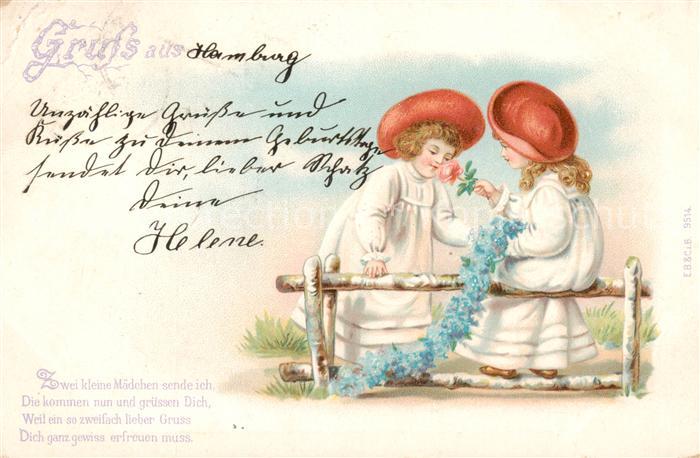 Gruss aus Hamburg
Unzählige Grüße und
Küße zu Deinem Geburtstage
sendet Dir, lieber Schatz
Deine
Helene.
E.B.&C.i.B. 9514.
Zwei kleine Mädchen sende ich,
Die kommen nun und grüssen Dich,
Weil ein so zweifach lieber Gruss
Dich ganz gewiss erfreuen muss.